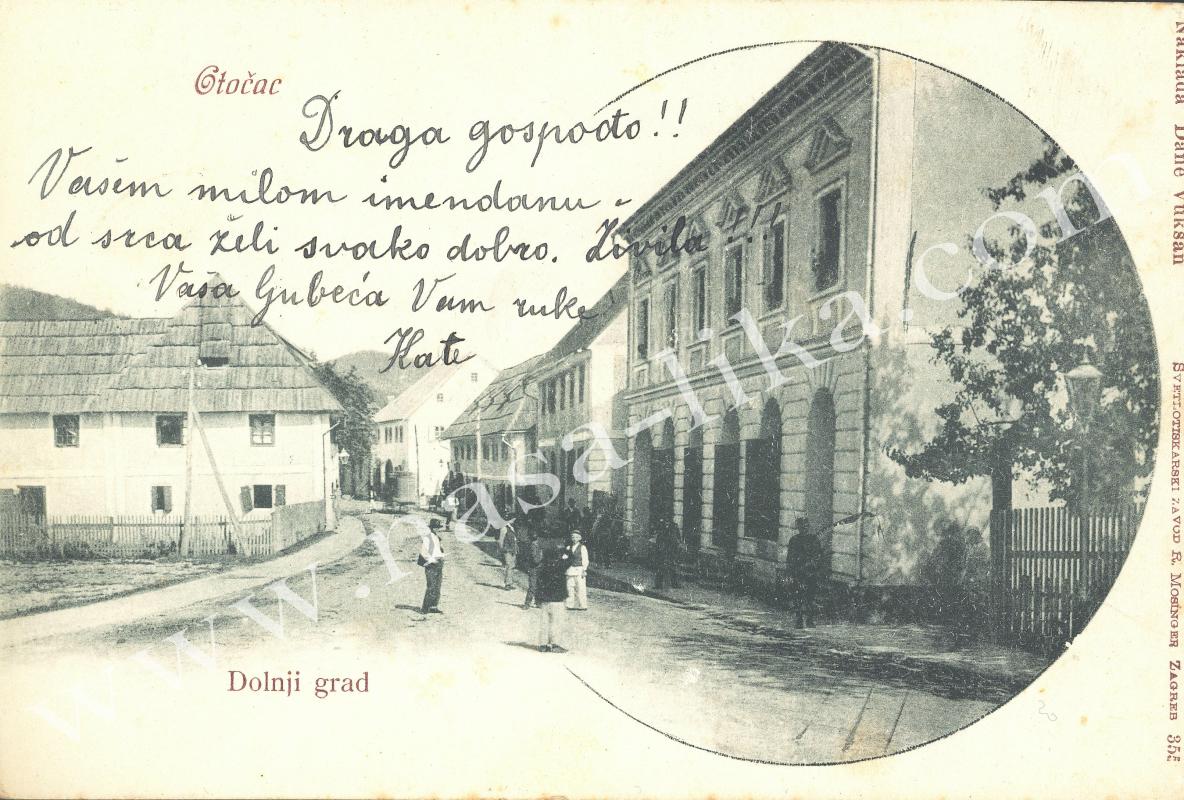 Otočac
Draga gospođo!!
Vašem milom imendanu -
od srca želi svako dobro. Živila!!!
Vaša Gubeća Vam ruke
Kate
Dolnji grad
Naklada Dane Vuksan
SVETLOTISKARSKI ZAVOD R. MOSINGER ZAGREB 355
www.nasa-lika.com
20